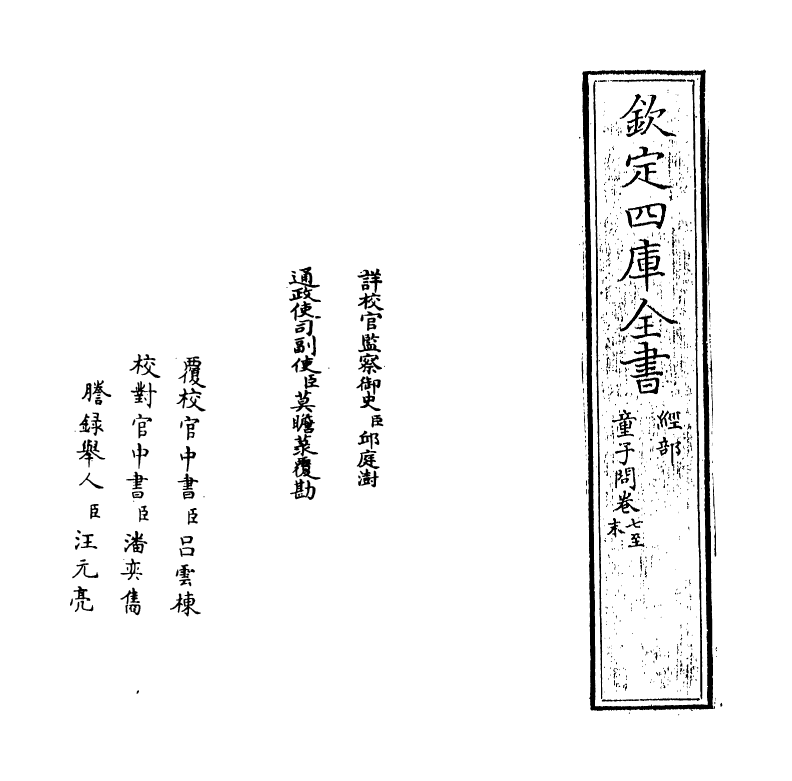 欽定四庫全書
經部
童子問卷七至末
詳校官監察御史臣邱庭澍
通政使司副使臣莫瞻菉覆勘
覆校官中書臣呂雲棟
校對官中書臣潘奕雋
謄録舉人臣汪元亮